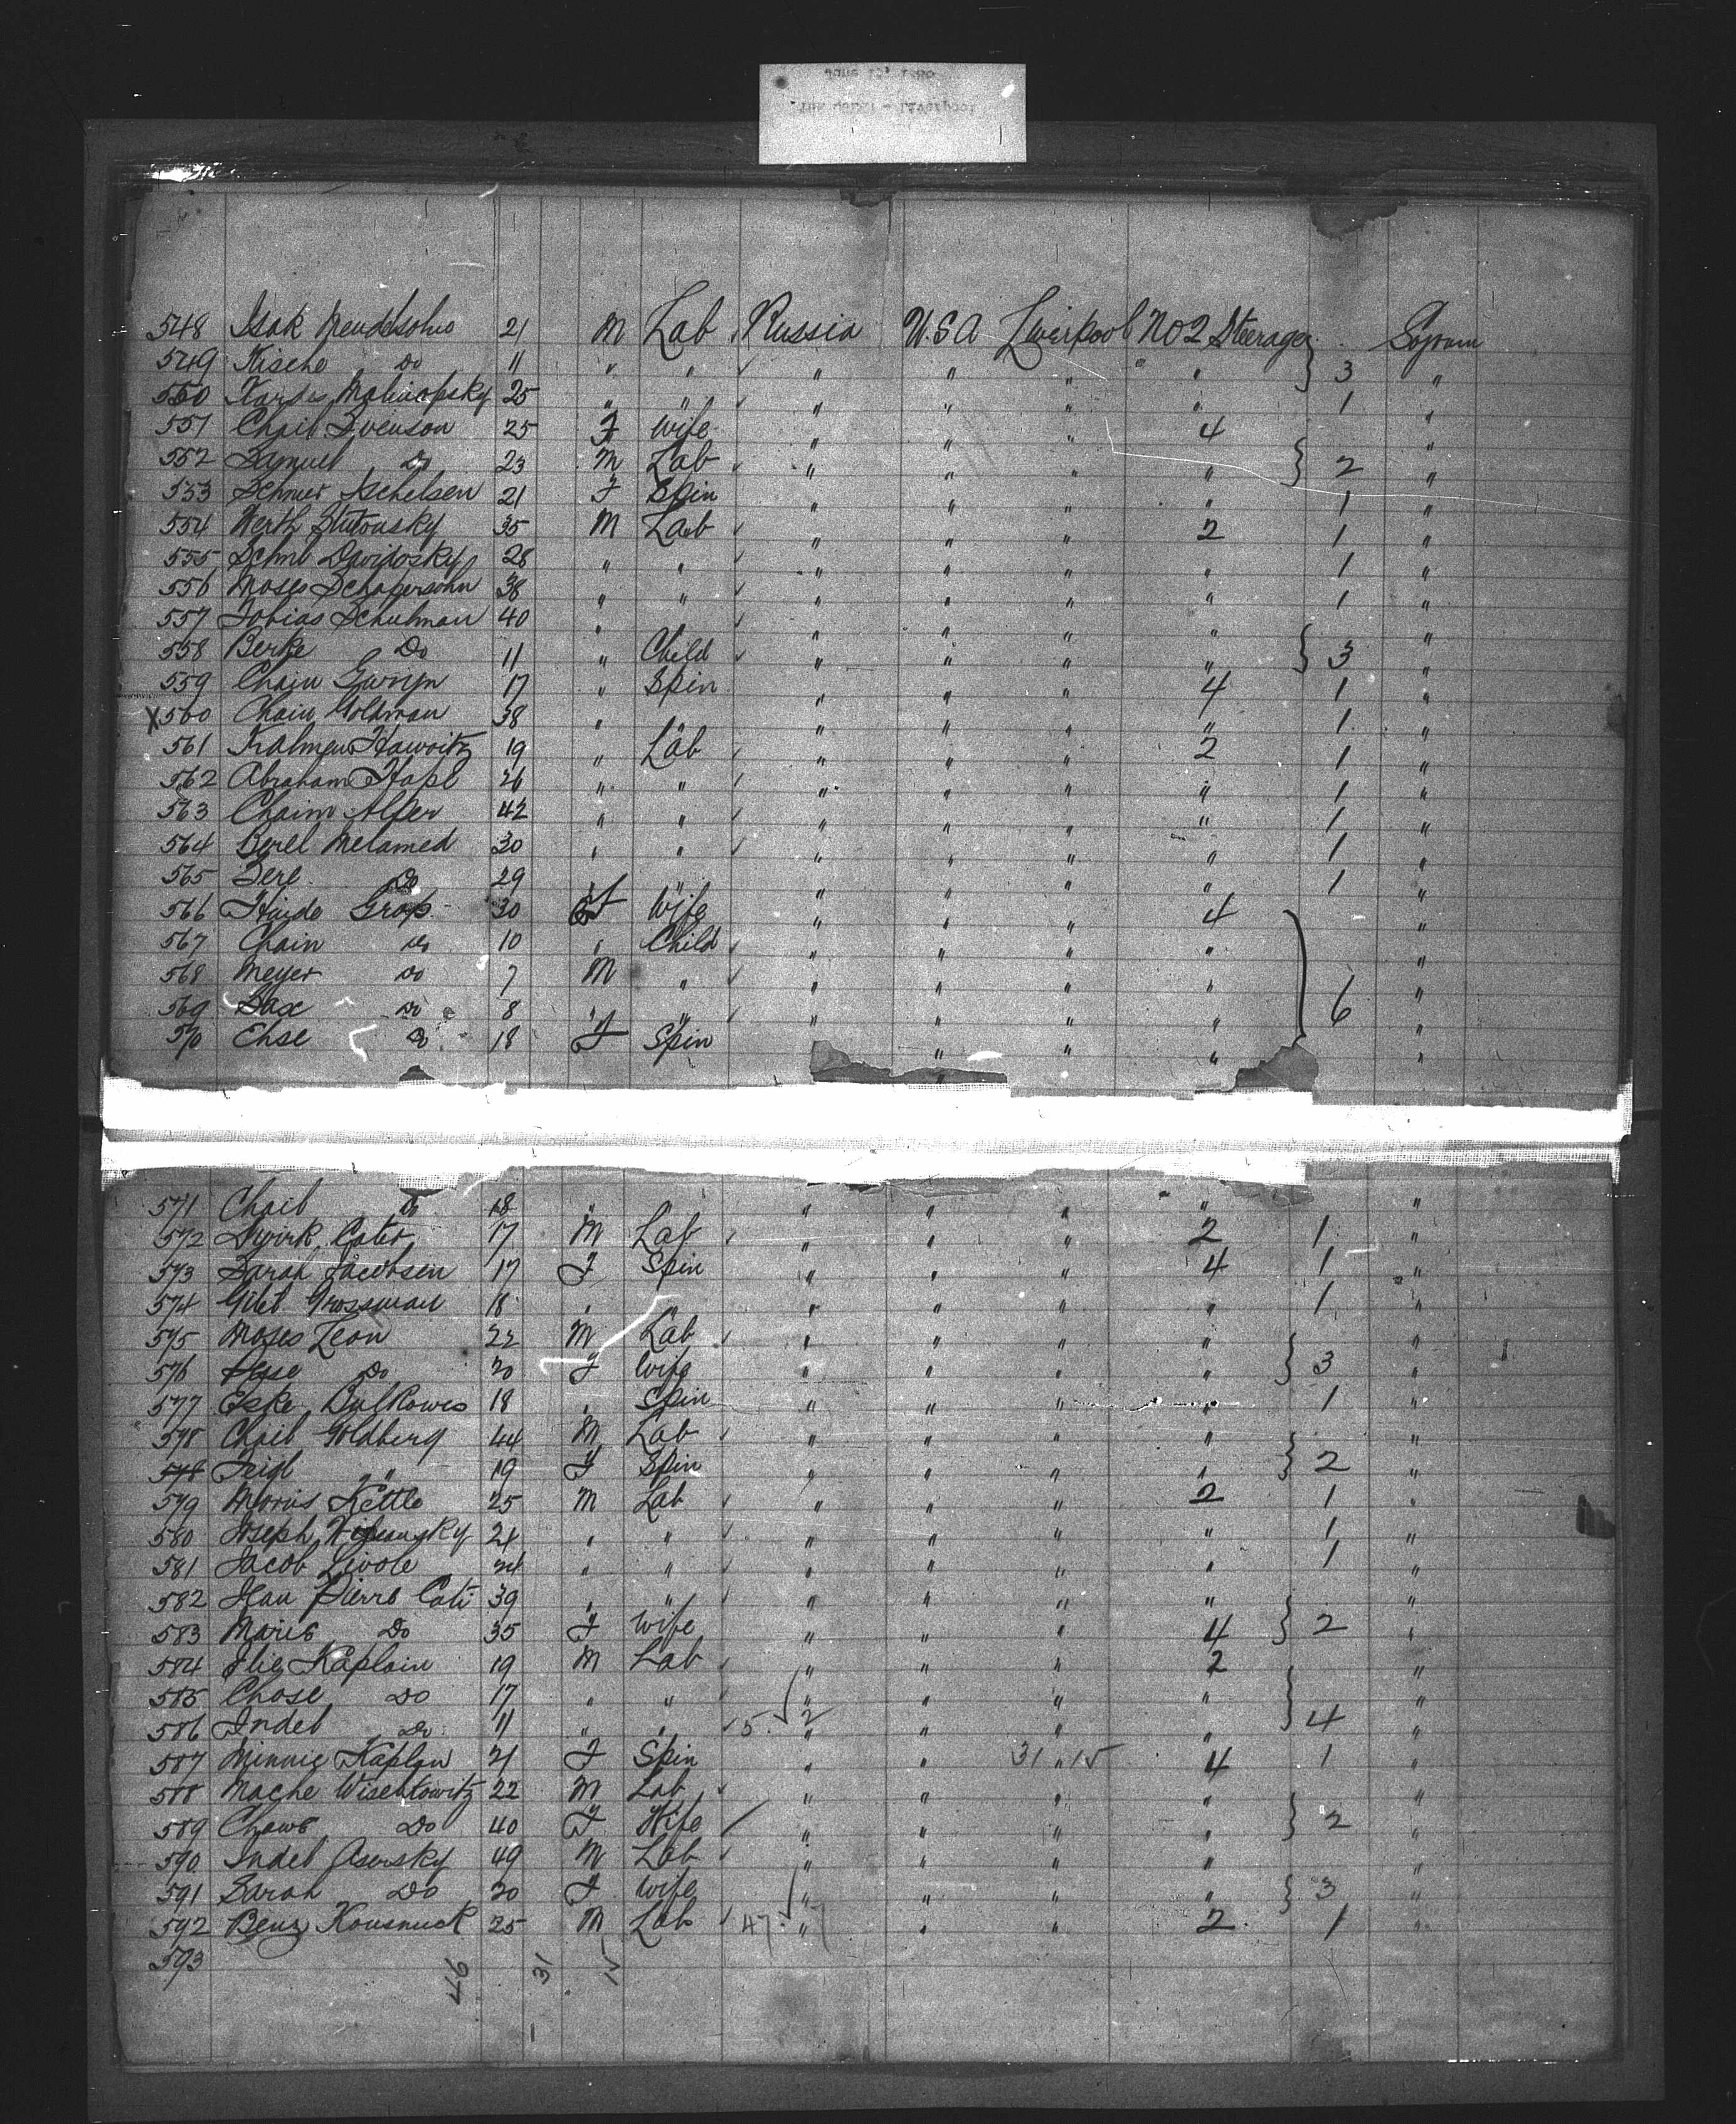 548 Isak Mendelsohn 21 M Lab Russia U.S.A Liverpool No 2 Steerage Sojourn
549 Kische Do 11 " " " " " " } 3 "
550 25 " " " " " " 1 "
551 Chaib Svenson 25 F Wife " " " 4 "
552 Samuel Do 23 M Lab " " " " } 2 "
553 21 F Spin " " " " 1 "
554 35 M Lab " " " 2 1 "
555 Davidosky 28 " " " " " " 1 "
556 Moses Schapersohn 38 " " " " " " 1 "
557 Tobias Schulman 40 " " " " " "
558 Berke Do 11 " Child " " " " } 3 "
559 Chain 17 " Spin " " " 4 1 "
X 560 Chain Goldman 38 " " " " " " 1 "
561 Kalmen Hawoitz 19 " Lab " " " 2 1 "
562 Abraham 26 " " " " " " 1 "
563 Chaim Alper 42 " " " " " " 1 "
564 Berel Melamed 30 " " " " " " 1 "
565 Do 29 " " " " " " 1 "
566 30 F Wife " " " 4 "
567 Chain Do 10 " Child " " " " "
568 Meyer Do 7 M " " " " " "
569 Sax Do 8 " " " " " " } 6 "
570 Ehse Do 18 F Spin " " " "
571 Chaib Do 18 " " " " " "
572 17 M Lab " " " 2 1 "
573 Sarah Jacobsen 17 F Spin " " " 4 1 "
574 Grossman 18 " " " " " " 1 "
575 Moses Leon 22 M Lab " " " " "
576 Do 20 F Wife " " " " } 3 "
577 Eske Bulkowes 18 " Spin " " " " 1 "
578 Chaib Goldberg 44 M Lab " " " " "
578 Feigl " 19 F Spin " " " " } 2 "
579 Morris Kettle 25 M Lab " " " 2 1 "
580 Joseph 24 " " " " " " 1 "
581 Jacob Livole 24 " " " " " " 1 "
582 Jean Pierre Cati 39 " " " " " " "
583 Marie Do 35 F Wife " " " 4 } 2 "
584 Kaplain 19 M Lab " " " 2 "
585 Chose Do 17 " " " " " " "
586 Indel Do 11 " " 5 2 " " " " } 4 "
587 Minnie Kaplan 21 F Spin " " 31 " 15 4 1 "
588 Mache Wisehkowitz 22 M Lab " " " " "
589 Do 40 F Wife " " " " } 2 "
590 Indel Asersky 49 M Lab " " " " "
591 Sarah Do 30 F Wife " " " " } 3 "
592 Benz Kousnuck 25 M Lab 47 " " " 2 1 "
593
46 31 15